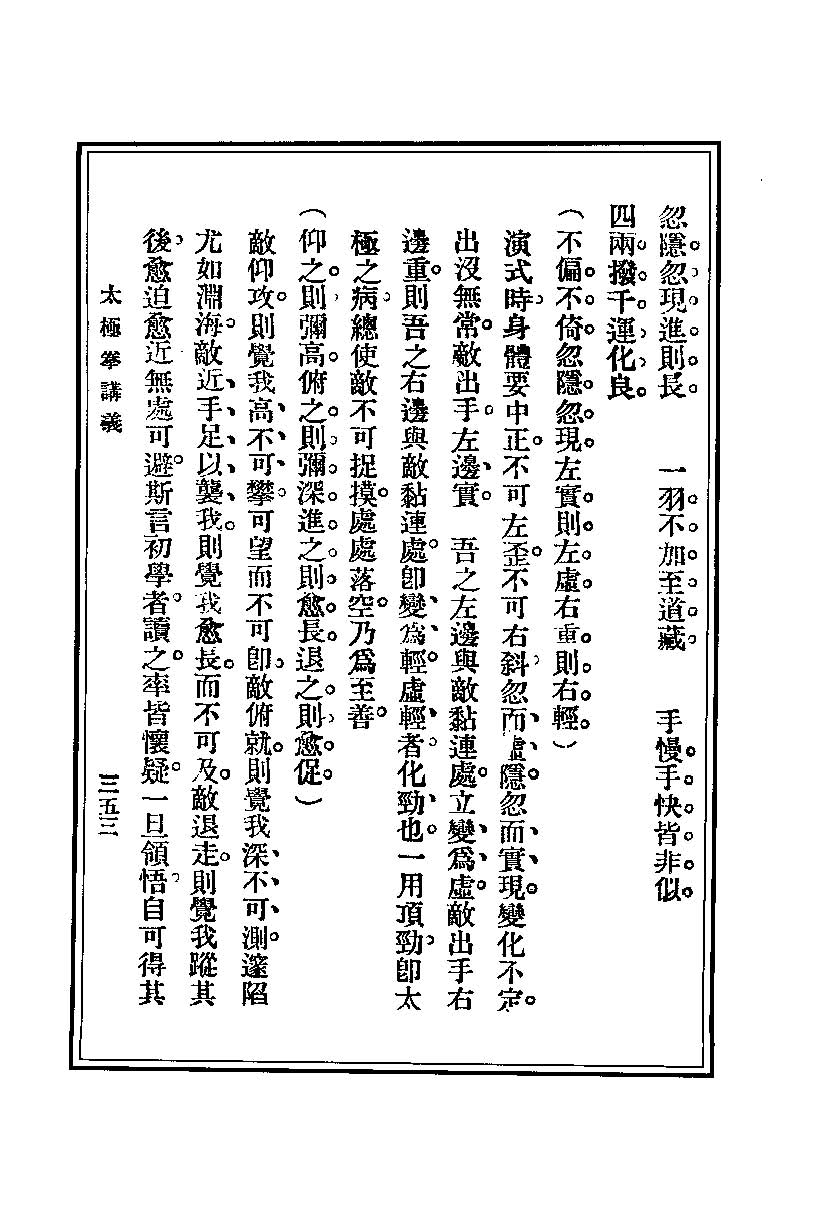 忽隱忽現進則長。　一羽不加至道藏。　手慢手快皆非似。
四兩撥千運化良。
（不偏不倚。忽隱忽現。左實則左虛。右重則右輕。）
演式時、身體要中正。不可左歪。不可右斜、忽而虛隱。忽而實現。變化不定。
出沒無常。敵出手。左邊實。　吾之左邊與敵黏連處。立變爲虛。敵出手右
邊重。則吾之右邊與敵黏連處。卽變爲輕。虛輕者。化勁也。一用頂勁、卽太
極之病、總使敵不可捉摸。處處落空。乃爲至善。
（仰之則彌高。俯之則彌深。進之則愈長。退之則愈促。）
敵仰攻。則覺我高不可攀。可望而不可卽、敵俯就。則覺我深不可測。邃陷
尤如淵海。敵近手足以襲我。則覺我愈長。而不可及。敵退走。則覺我蹤其
後、愈迫愈近、無處可避。斯言初學者。讀之。率皆懷疑。一旦領悟、自可得其
太極拳講義
三五三